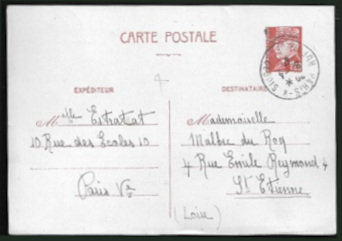 CARTE POSTALE
EXPÉDITEUR
Mlle Estratat
10 Rue des Ecoles 10
Paris Ve
DESTINATAIRE
Mademoiselle
Malbec du Roq
4 Rue Emile Reymond 4
St Etienne
(Loire)